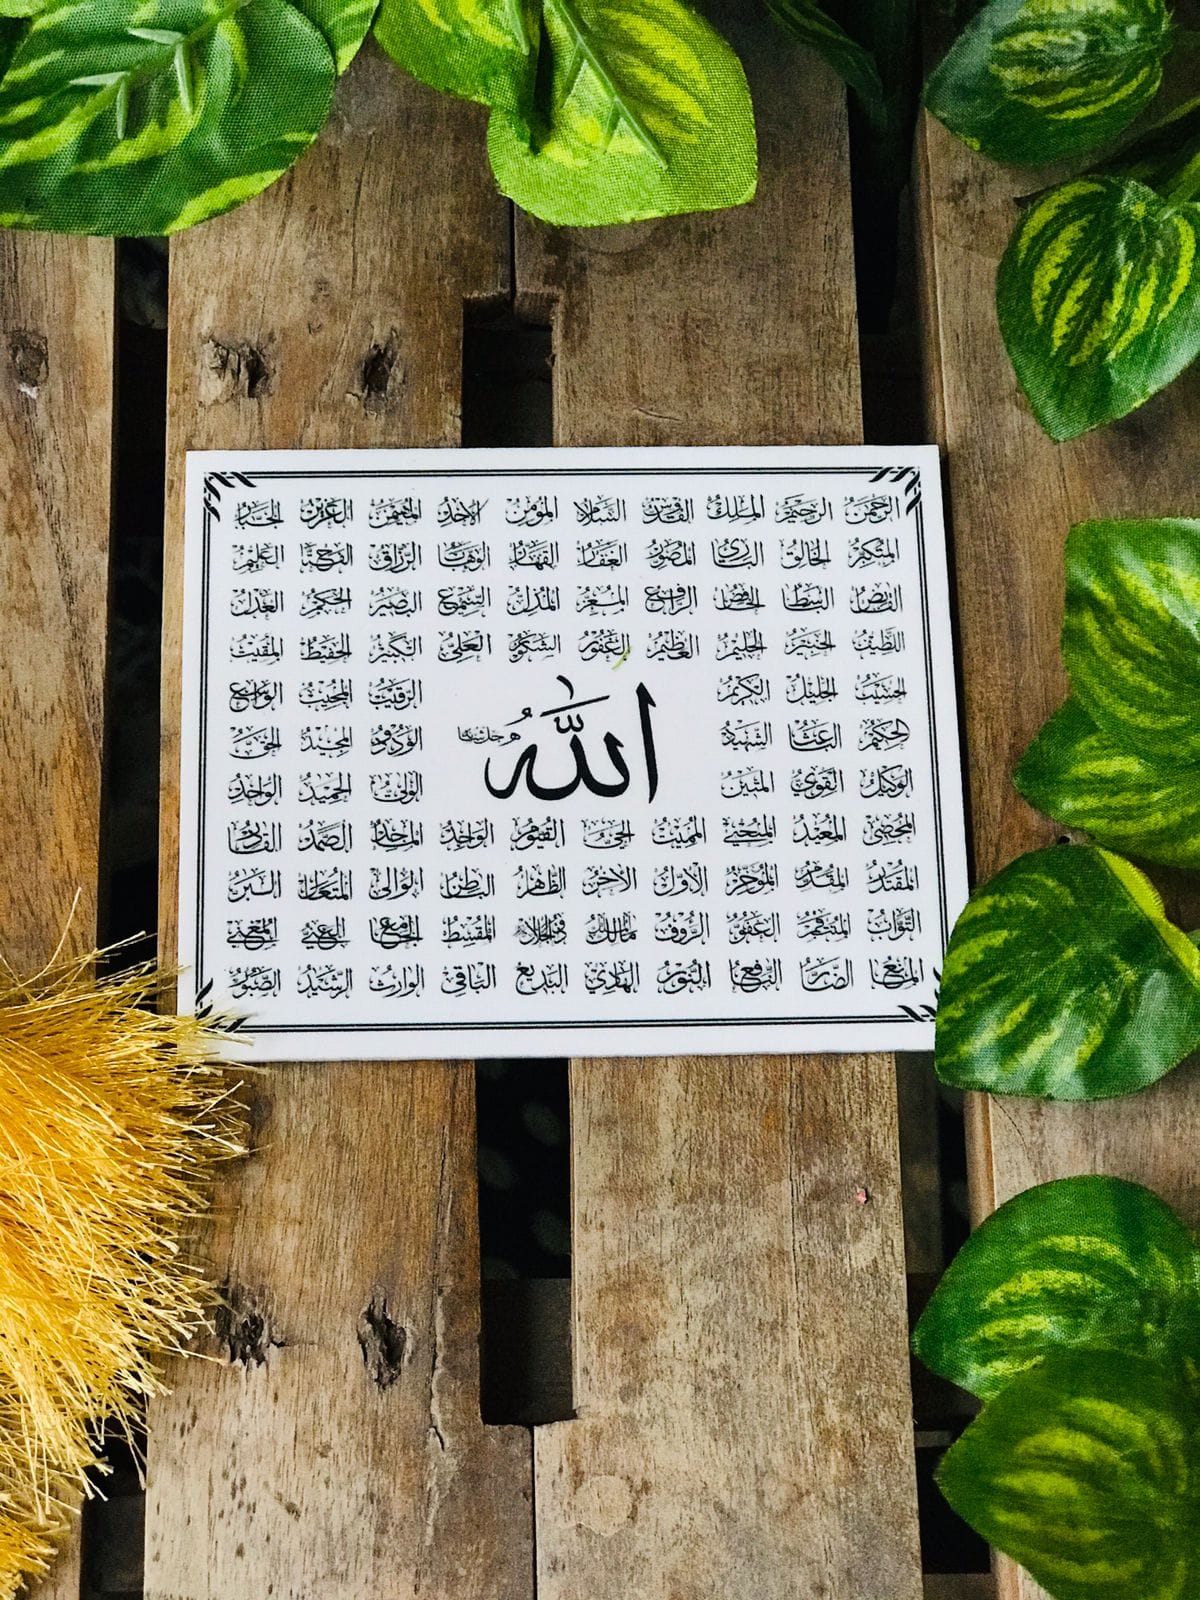 الرَّحْمٰنُ الرَّحِيْمُ المَلِكُ القُدُّوْسُ السَّلَامُ المُؤْمِنُ الأَحَدُ المُهَيْمِنُ العَزِيْزُ الجَبَّارُ
المُتَكَبِّرُ الخَالِقُ البَارِئُ المُصَوِّرُ الغَفَّارُ القَهَّارُ الوَهَّابُ الرَّزَّاقُ الفَتَّاحُ العَلِيْمُ
القَابِضُ البَاسِطُ الخَافِضُ الرَّافِعُ المُعِزُّ المُذِلُّ السَّمِيْعُ البَصِيْرُ الحَكَمُ العَدْلُ
اللَّطِيْفُ الخَبِيْرُ الحَلِيْمُ العَظِيْمُ الغَفُوْرُ الشَّكُوْرُ العَلِيُّ الكَبِيْرُ الحَفِيْظُ المُقِيْتُ
الحَسِيْبُ الجَلِيْلُ الكَرِيْمُ الرَّقِيْبُ المُجِيْبُ الوَاسِعُ
الحَكِيْمُ البَاعِثُ الشَّهِيْدُ اللّٰهُ الوَدُوْدُ المَجِيْدُ الحَقُّ
الوَكِيْلُ القَوِيُّ المَتِيْنُ الوَلِيُّ الحَمِيْدُ الوَاحِدُ
المُحْصِي المُعِيْدُ المُحْيِي المُمِيْتُ الحَيُّ القَيُّوْمُ الوَاجِدُ المَاجِدُ الصَّمَدُ القَادِرُ
المُقْتَدِرُ المُقَدِّمُ المُؤَخِّرُ الأَوَّلُ الآخِرُ الظَّاهِرُ البَاطِنُ الوَالِي المُتَعَالِ البَرُّ
التَّوَّابُ المُنْتَقِمُ العَفُوُّ الرَّؤُوْفُ المُقْسِطُ الجَامِعُ الغَنِيُّ المُغْنِي
المَانِعُ الضَّارُّ النَّافِعُ النُّوْرُ الهَادِي البَدِيْعُ البَاقِي الوَارِثُ الرَّشِيْدُ الصَّبُوْرُ